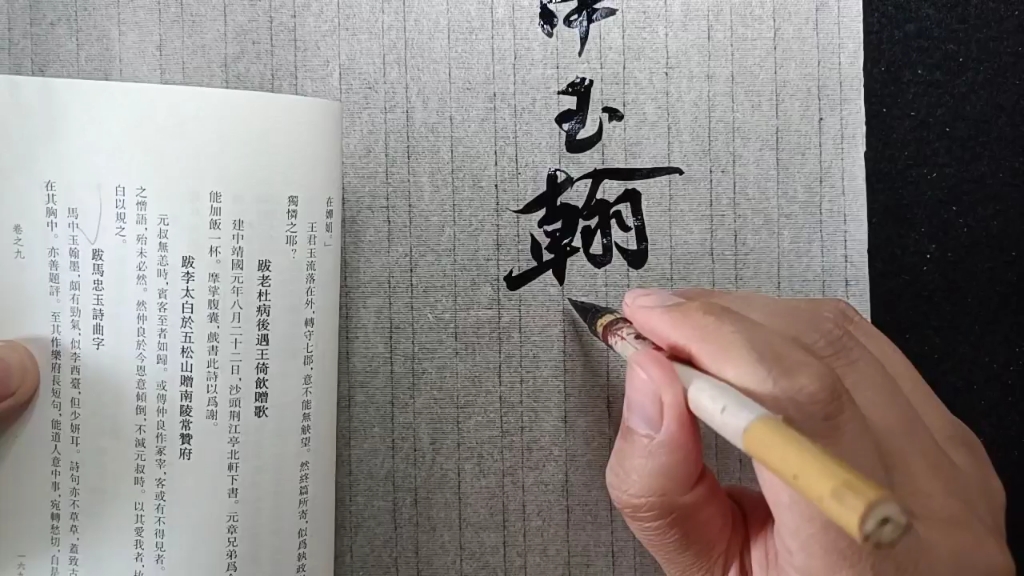 玉翰
在嬋娟。」
王君玉流落在外，轉守七郡，意不能無觖望。然終篇所寄，似爲執政
獨憐之耶？
跋老杜病後遇王倚飲贈歌
建中靖國元年八月二十二日，沙頭荆江亭北軒下書。元章兄弟爲
能加飯一杯。摩挲腹囊，戲書此詩以爲謝。
跋李太白於五松山贈南陵常贊府
元叔無恙時，賓客至者如歸。或傳仲良作冢宰，客或有不得見者。
之憎語，殆未必然。然仲良於今恩意傾倒，不減元叔時。以其愛我者，
白以規之。
跋馬忠玉詩曲字
馬中玉翰墨，頗有勁氣，似李西臺，但少妍耳。詩句亦不草草，蓋致古
在其胸中。亦善題評。至其作樂府長短句，能道人意中事，宛轉愁切，自是
卷之九
一六